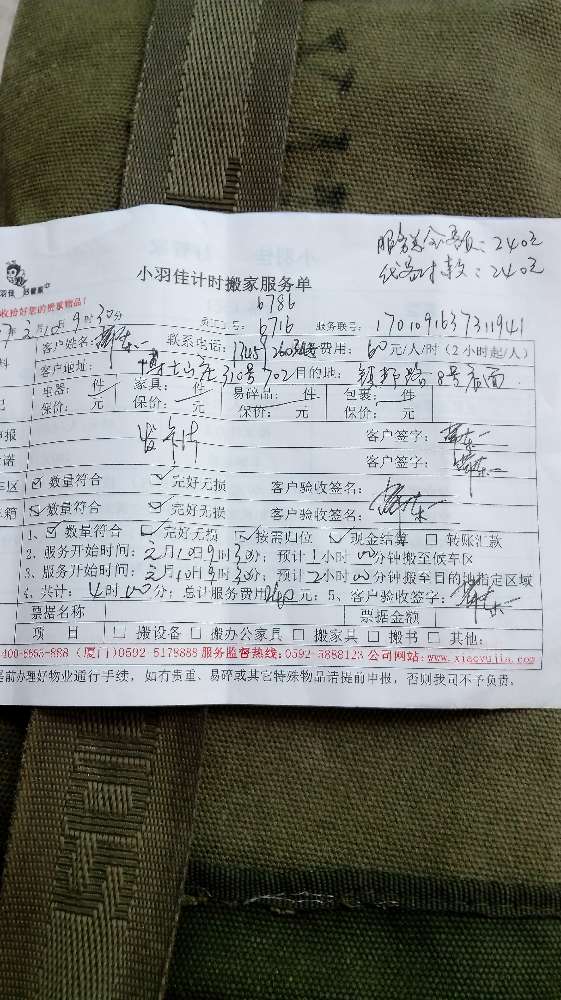 服务总金额：240元
代客付款：240元
小羽佳计时搬家服务单
收拾好您的贵家赠品！
6786
2月10日9时30分
员工号：6716 业务联号：1701091637311941
客户姓名： 联系电话： 费用：60元/人/时（2小时起/人）
客户地址： 310号702目的地： 8号店面
电器：件 家具：件 易碎品：件 包装：件
保价：元 保价：元 保价：元 保价：元
发卡片 客户签字：
客户签字：
车区 数量符合 完好无损 客户验收签名：
车箱 数量符合 完好无损 客户验收签名：
1、数量符合 完好无损 按需归位 现金结算 转账汇款
2、服务开始时间：元月10日9时30分；预计1小时00分钟搬至候车区
3、服务开始时间：元月10日9时30分；预计2小时00分钟搬车目的地指定区域
4、共计：4时00分；总计服务费用240元；5、客户验收签字：
票据名称 票据金额
项 目 搬设备 搬办公家具 搬家具 搬书 其他：
(厦门)0592-5178888服务监督热线:0592-5888123 公司网站：www.xiaoyujia.com
前办理好物业通行手续，如有贵重、易碎或其它特殊物品请提前申报，否则我司不予负责。